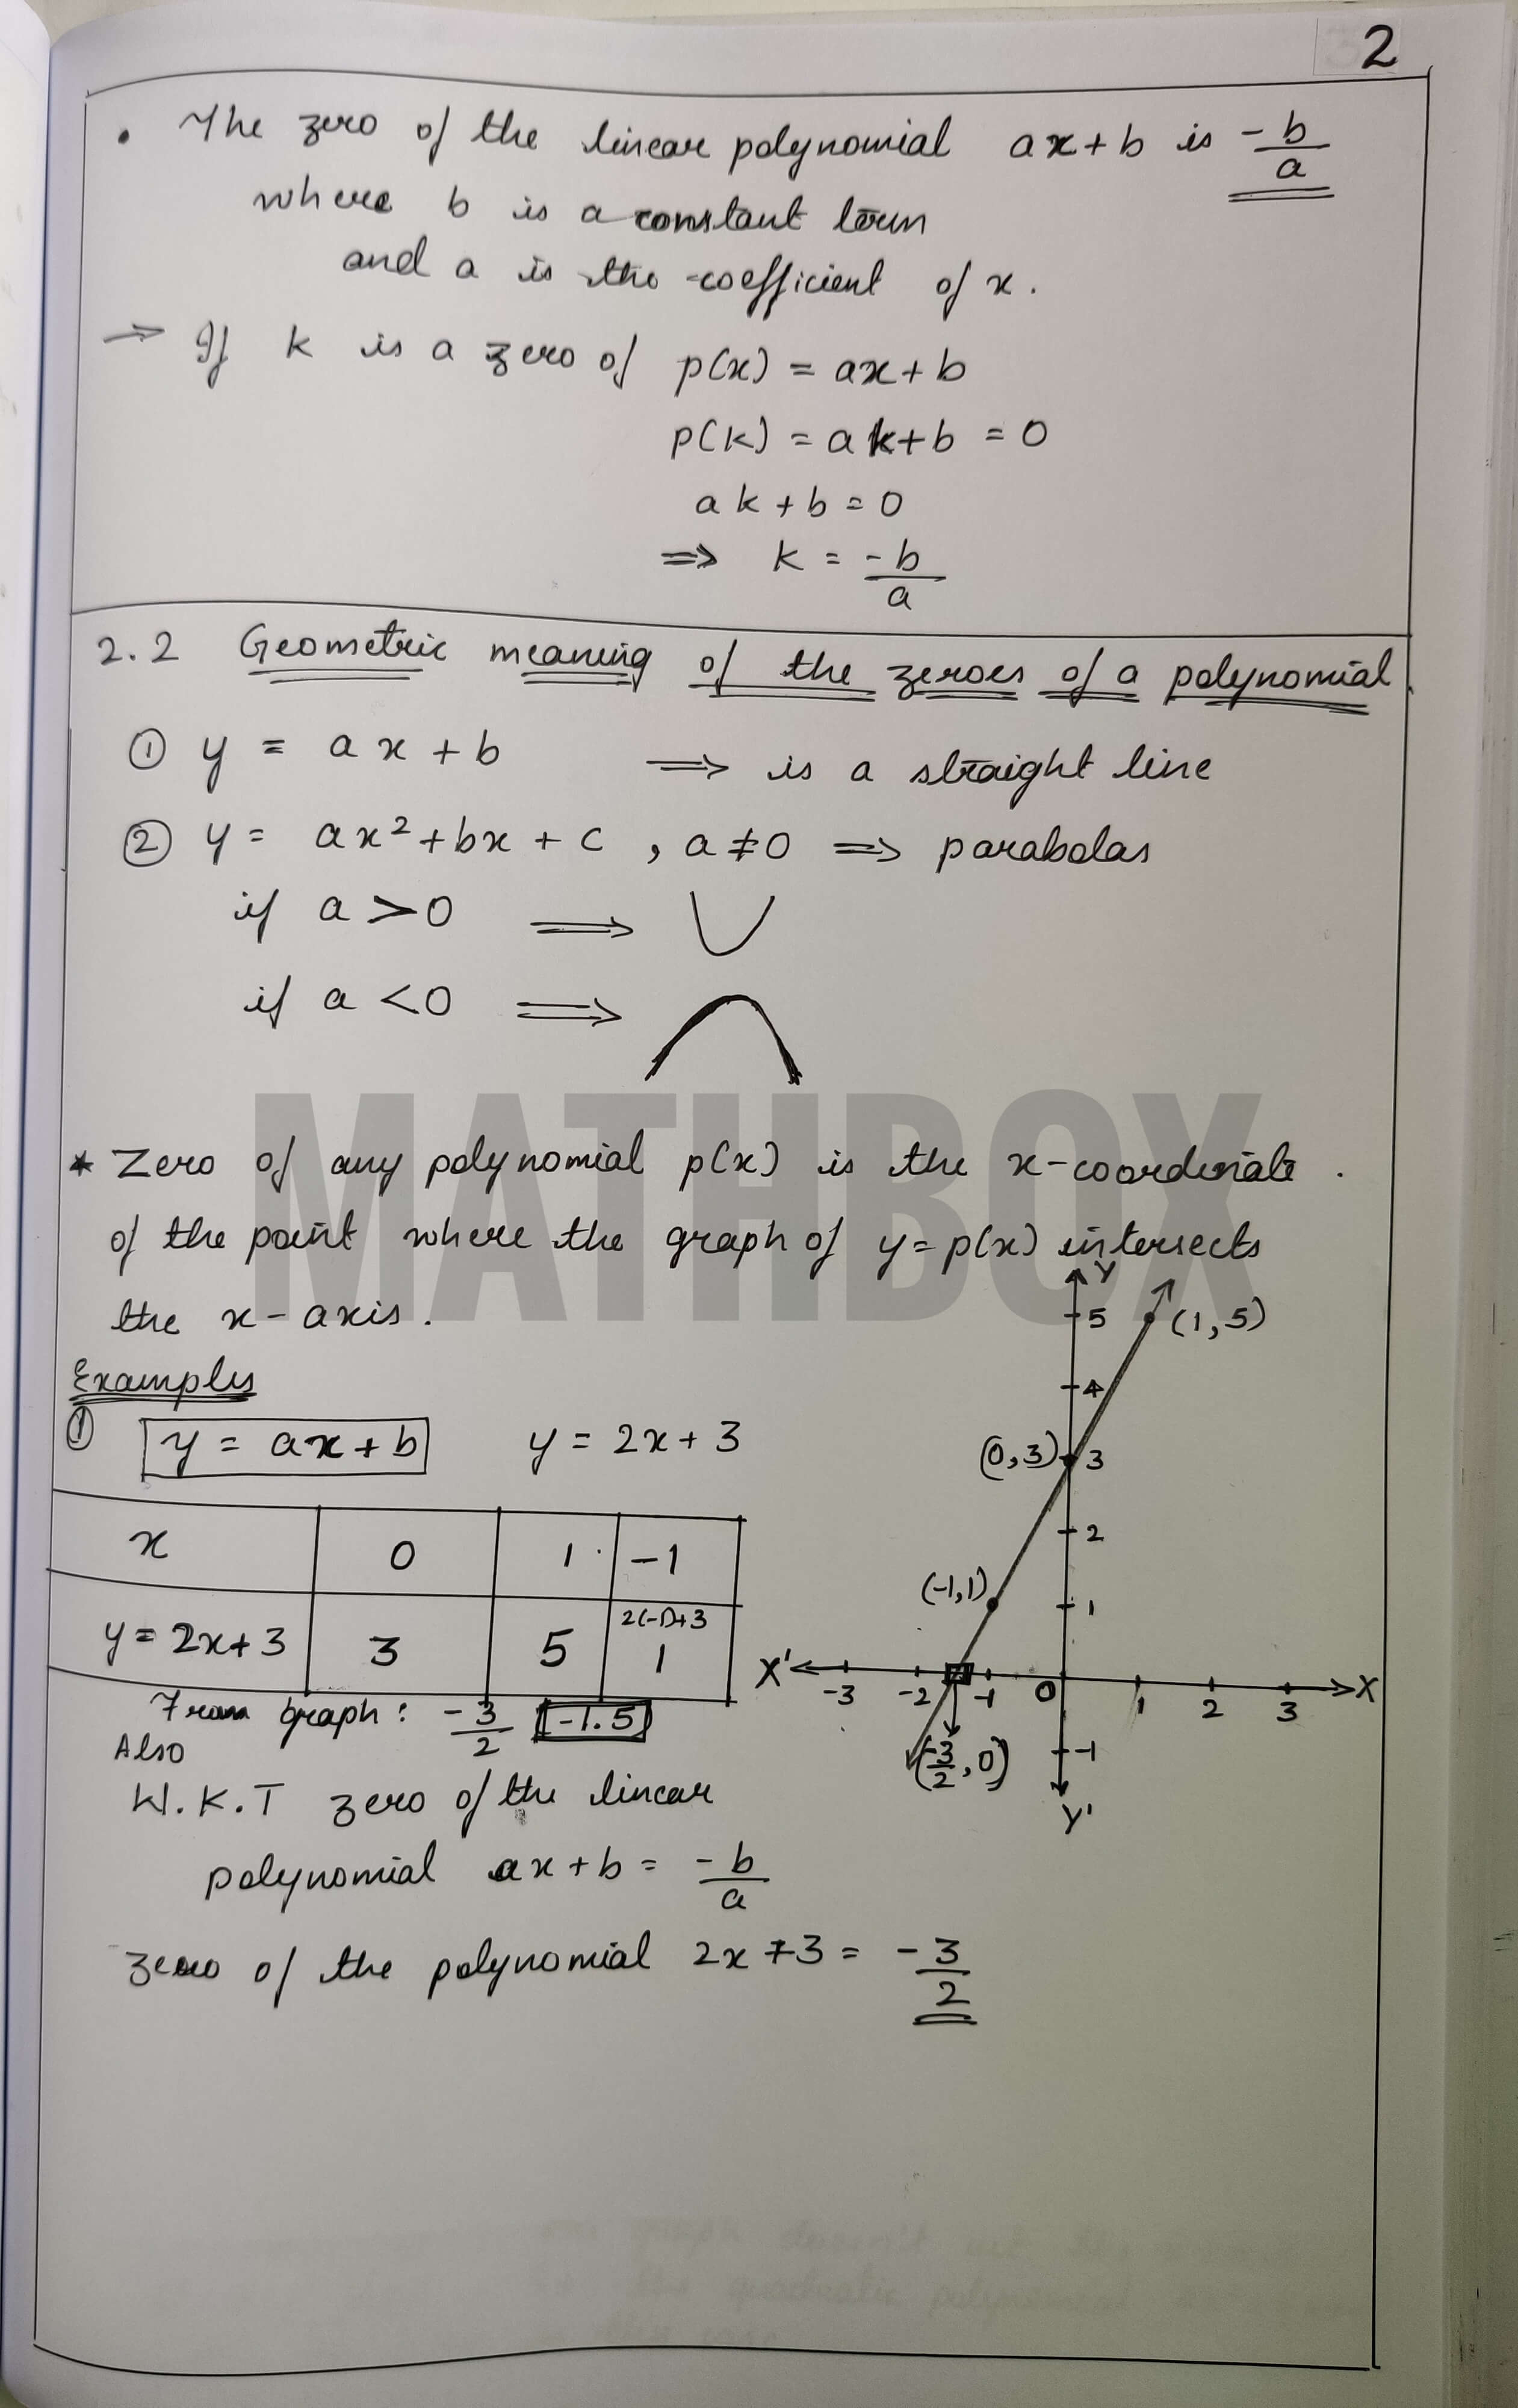 2
• The zero of the linear polynomial ax+b is -b/a
where b is a constant term
and a is the coefficient of x.
⇒ If k is a zero of p(x) = ax+b
p(k) = ak+b = 0
ak+b=0
⇒ k = -b/a
2.2 Geometric meaning of the zeroes of a polynomial
① y = ax+b ⇒ is a straight line
② y = ax²+bx+c , a≠0 ⇒ parabolas
if a>0 ⇒
if a<0 ⇒
MATHBOX
* Zero of any polynomial p(x) is the x-coordinate .
of the point where the graph of y=p(x) intersects
the x-axis.
Examples
① y = ax+b y = 2x+3
x 0 1 -1
y=2x+3 3 5 2(-1)+3 1
From graph: -3/2 -1.5
Also
W.K.T zero of the linear
polynomial ax+b = -b/a
zero of the polynomial 2x+3 = -3/2
Y
5 (1,5)
4
(0,3) 3
2
(-1,1) 1
X' -3 -2 -1 0 1 2 3 X
(-3/2, 0) -1
Y'